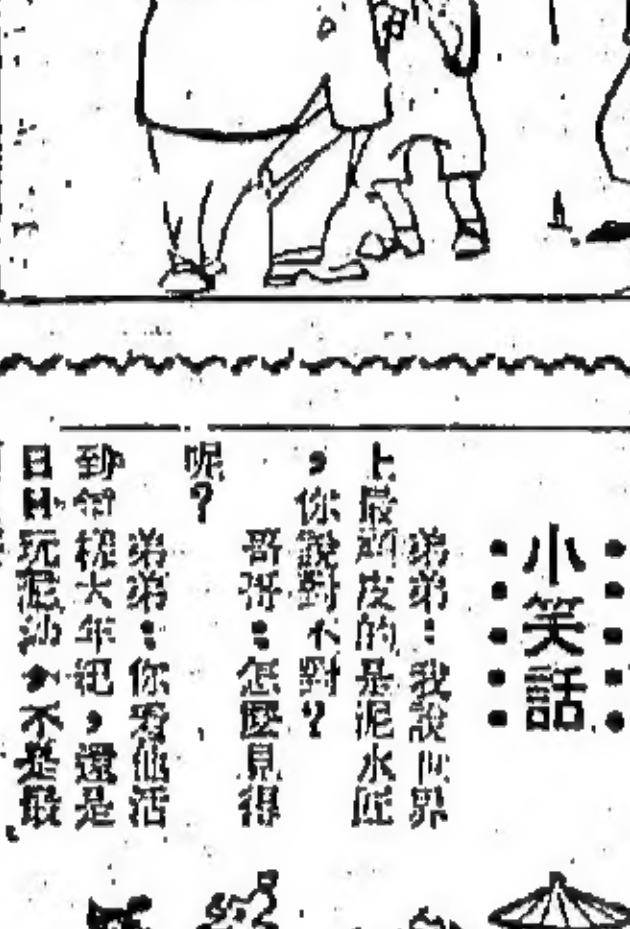 小笑話
弟弟：我說世界
上最頑皮的是泥水匠
，你說對不對？
哥哥：怎麼見得
呢？
弟弟：你看他活
到年紀，還是
日日玩泥沙，不是最